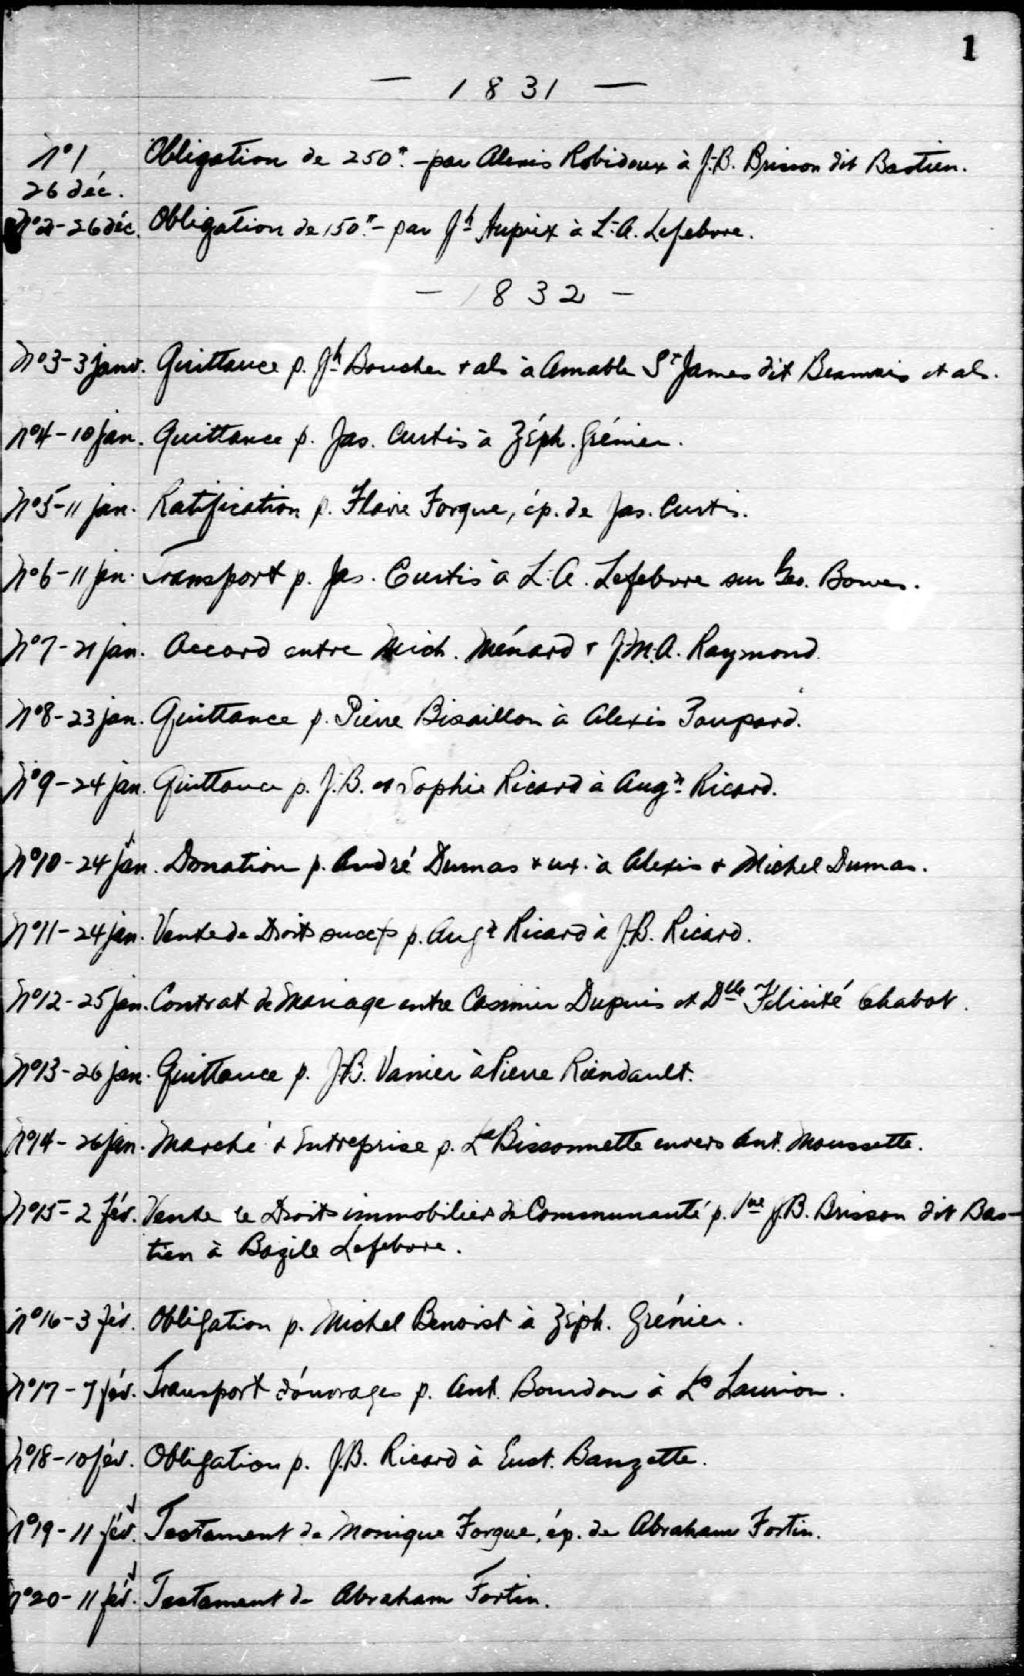 1
— 1831 —
N°1 Obligation de 250ᶧ. - par Alexis Robidoux à J.-B. Brisson dit Bastien.
26 déc.
N°2 - 26 déc. Obligation de 150ᶧ - par Jʰ Auprix à L.-A. Lefebvre.
- 1832 -
N°3 - 3 janv. Quittance p. Jʰ Boucher + als à Amable Sᵗ James dit Beauvais et als.
N°4 - 10 jan. Quittance p. Jas. Curtis à Zéph. Grénier.
N°5 - 11 jan. Ratification p. Flavie Forgue, ép. de Jas. Curtis.
N°6 - 11 jan. Transport p. Jas. Curtis à L. A. Lefebvre sur Geo. Bower.
N°7 - 21 jan. Accord entre Mich. Ménard + J.M.A. Raymond.
N°8 - 23 jan. Quittance p. Pierre Bisaillon à Alexis Poupard.
N°9 - 24 jan. Quittance p. J.B. et Sophie Ricard à Augⁿ Ricard.
N°10 - 24 jan. Donation p. André Dumas + ux. à Alexis + Michel Dumas.
N°11 - 24 jan. Vente de Droits p. Augⁿ Ricard à J.B. Ricard.
N°12 - 25 jan. Contrat de Mariage entre Casimir Dupuis et Dˡˡᵉ Félicité Chabot.
N°13 - 26 jan. Quittance p. J.-B. Vanier à Pierre Riendault.
N°14 - 26 jan. Marché + Entreprise p. Lˢ Bissonnette envers Ant. Moussette.
N°15 - 2 fév. Vente de Droits immobiliers de Communauté p. Vᵛᵉ J.B. Brisson dit Bas-
tien à Bazile Lefebvre.
N°16 - 3 fév. Obligation p. Michel Benoist à Zéph. Grénier.
N°17 - 7 fév. Transport d'ouvrages p. Ant. Bourdon à Lˢ Laurion.
N°18 - 10 fév. Obligation p. J.B. Ricard à Eust. Banzette.
N°19 - 11 fév. Testament de Monique Forgue, ép. de Abraham Fortin.
N°20 - 11 fév. Testament de Abraham Fortin.